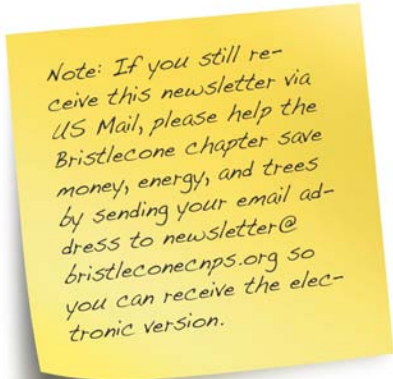 Note: If you still re-
ceive this newsletter via
US Mail, please help the
Bristlecone chapter save
money, energy, and trees
by sending your email ad-
dress to newsletter@
bristleconecnps.org so
you can receive the elec-
tronic version.